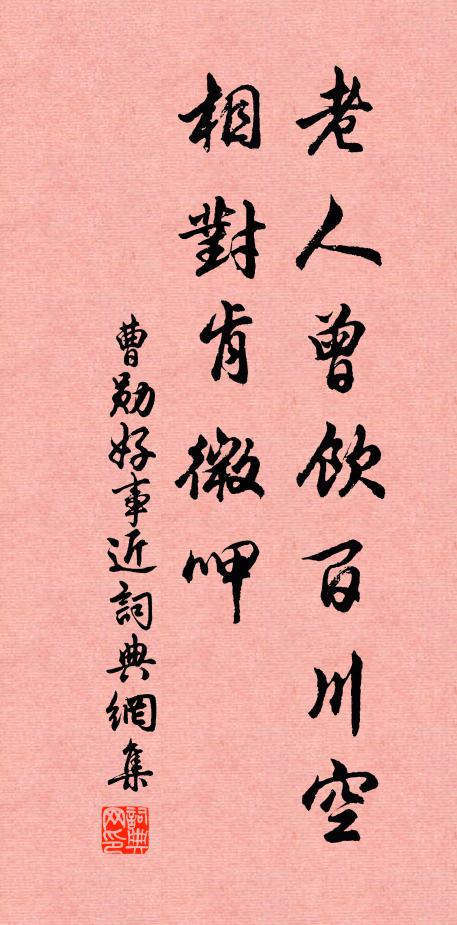 老人曾飲百川空
相對肯微呷
曹勛好事近詞典網集
詞典网印